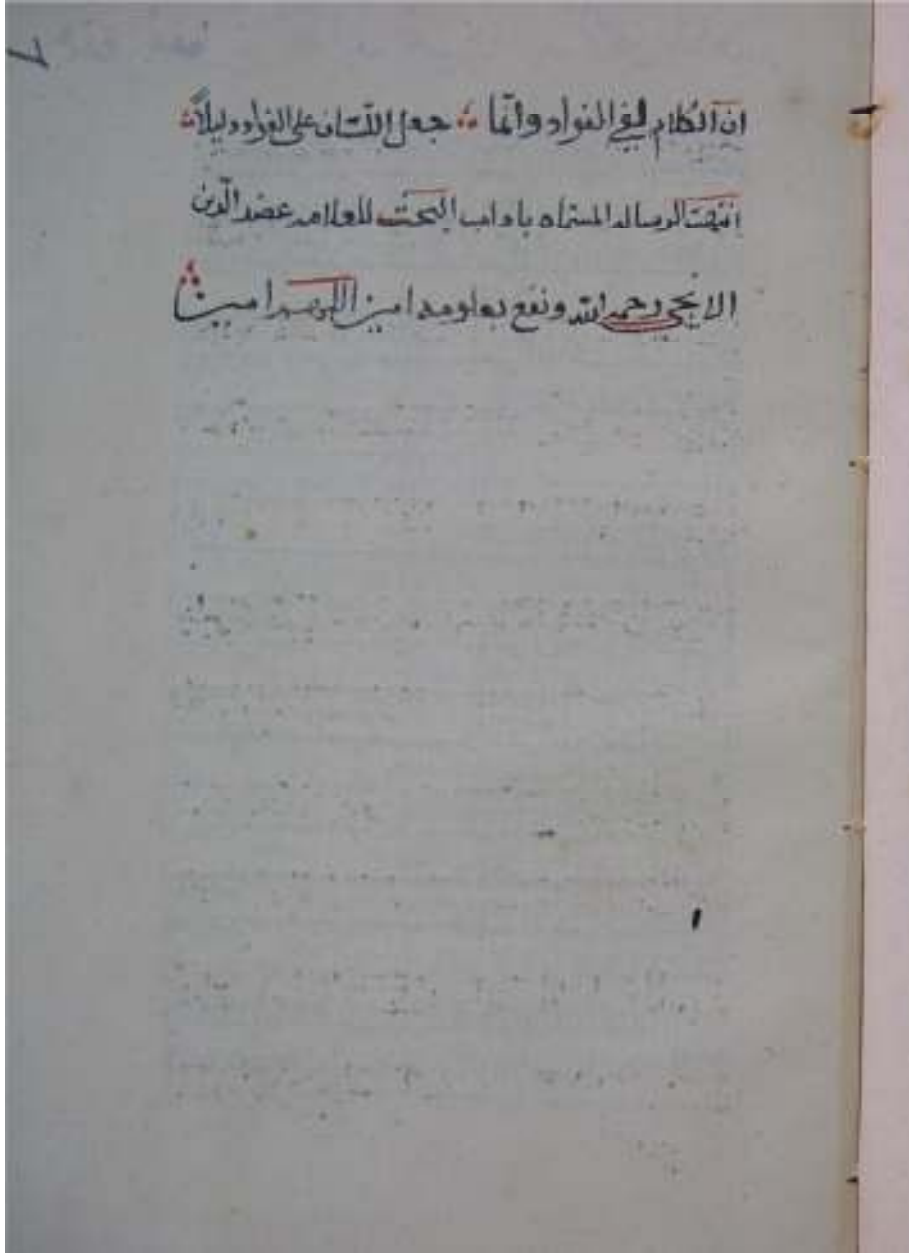 ان الكلام لفي الفواد وانما جعل اللسان على الفواد دليلا
انتهت الرساله المسماه باداب البحث للعلامه عضد الدين
الايجي رحمه الله ونفع بعلومه امين اللهم امين